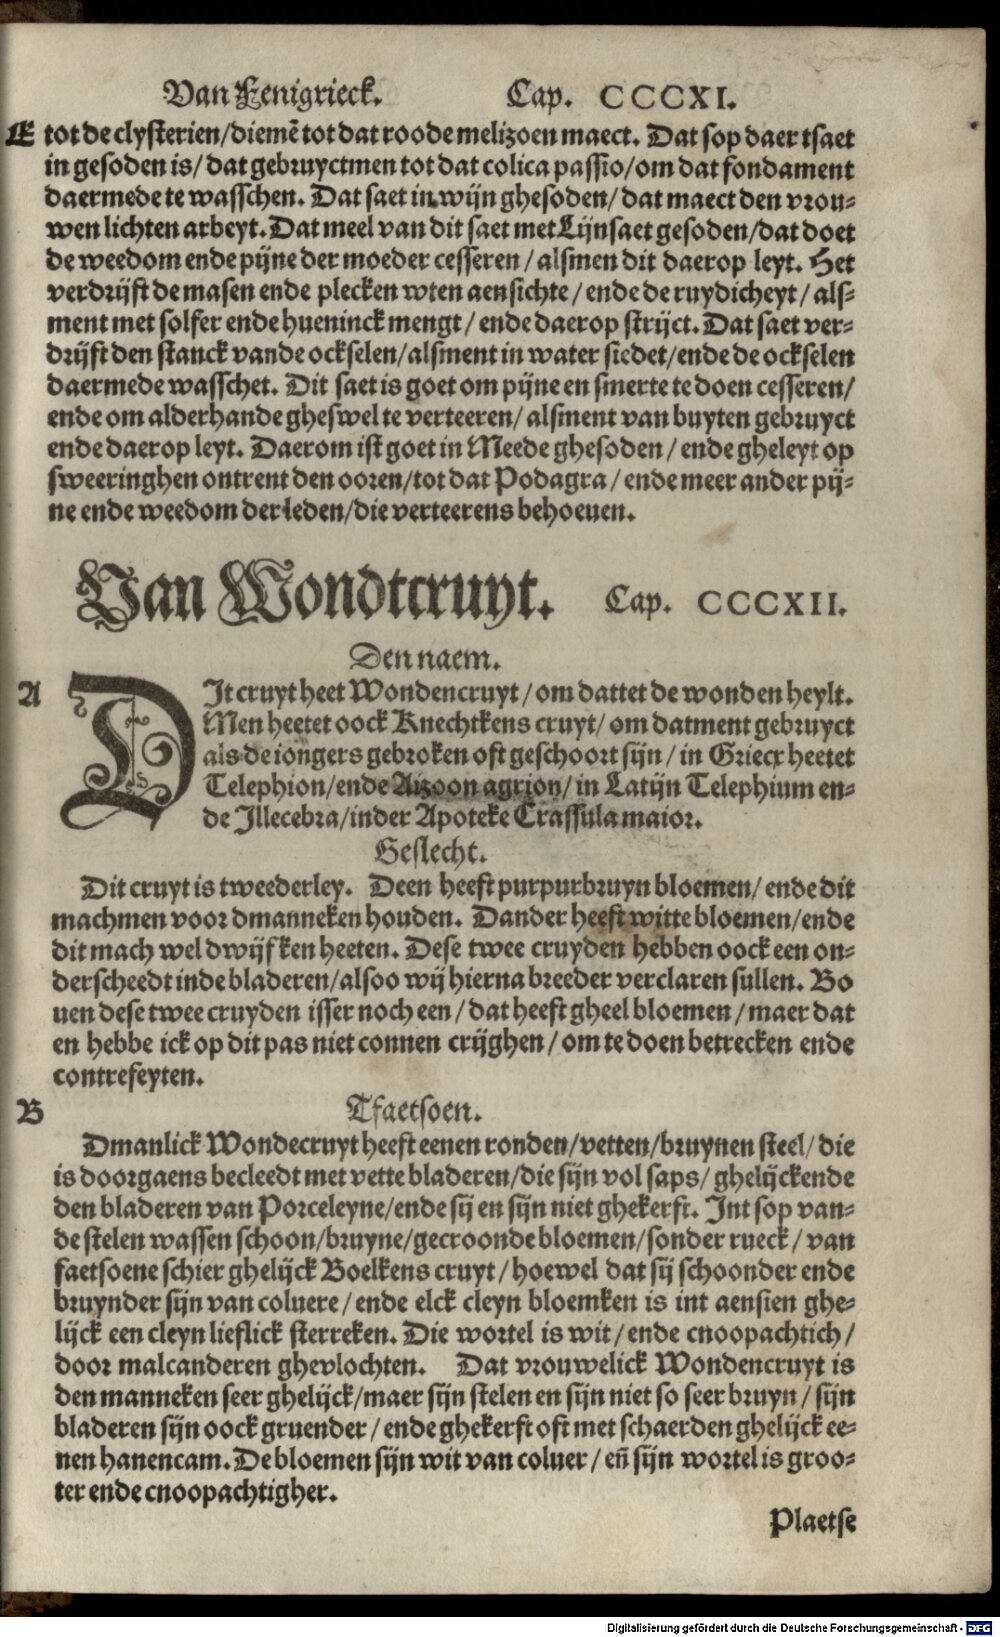 Van Fenigrieck. Cap. CCCXI.
E tot de clysterien/diemē tot dat roode melizoen maect. Dat sop daer tsaet
in gesoden is/dat gebruyctmen tot dat colica passio/om dat fondament
daermede te wasschen. Dat saet in wijn ghesoden/dat maect den vrou-
wen lichten arbeyt. Dat meel van dit saet met Lijnsaet gesoden/dat doet
de weedom ende pijne der moeder cesseren/alsmen dit daerop leyt. Het
verdrijft de masen ende plecken wten aensichte/ende de ruydicheyt/als-
ment met solfer ende hueninck mengt/ende daerop strijct. Dat saet ver-
drijft den stanck vande ockselen/alsment in water siedet/ende de ockselen
daermede wasschet. Dit saet is goet om pijne en smerte te doen cesseren/
ende om alderhande gheswel te verteeren/alsment van buyten gebruyct
ende daerop leyt. Daerom ist goet in Meede ghesoden/ende gheleyt op
sweeringhen ontrent den ooren/tot dat Podagra/ende meer ander pij-
ne ende weedom der leden/die verteerens behoeuen.
Van Wondtcruyt. Cap. CCCXII.
Den naem.
A DJt cruyt heet Wondencruyt/om dattet de wonden heylt.
Men heetet oock Knechtkens cruyt/om datment gebruyct
als de iongers gebroken oft geschoort sijn/in Griecx heetet
Telephion/ende Aizoon agrion/in Latijn Telephium en-
de Jllecebra/inder Apoteke Crassula maior.
Geslecht.
Dit cruyt is tweederley. Deen heeft purpurbruyn bloemen/ende dit
machmen voor dmanneken houden. Dander heeft witte bloemen/ende
dit mach wel dwijfken heeten. Dese twee cruyden hebben oock een on-
derscheedt inde bladeren/alsoo wij hierna breeder verclaren sullen. Bo
uen dese twee cruyden isser noch een/dat heeft gheel bloemen/maer dat
en hebbe ick op dit pas niet connen crijghen/om te doen betrecken ende
contrefeyten.
B Tfaetsoen.
Dmanlick Wondecruyt heeft eenen ronden/vetten/bruynen steel/die
is doorgaens becleedt met vette bladeren/die sijn vol saps/ghelijckende
den bladeren van Porceleyne/ende sij en sijn niet ghekerft. Jnt sop van-
de stelen wassen schoon/bruyne/gecroonde bloemen/sonder rueck/van
faetsoene schier ghelijck Boelkens cruyt/hoewel dat sij schoonder ende
bruynder sijn van coluere/ende elck cleyn bloemken is int aensien ghe-
lijck een cleyn lieflick sterreken. Die wortel is wit/ende cnoopachtich/
door malcanderen ghevlochten. Dat vrouwelick Wondencruyt is
den manneken seer ghelijck/maer sijn stelen en sijn niet so seer bruyn/sijn
bladeren sijn oock gruender/ende ghekerft oft met schaerden ghelijck ee-
nen hanencam. De bloemen sijn wit van coluer/eñ sijn wortel is groo-
ter ende cnoopachtigher.
Plaetse
Digitalisierung gefördert durch die Deutsche Forschungsgemeinschaft - DFG